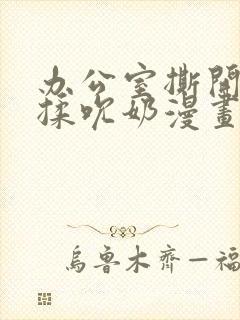 办公室撕開
揉吹奶漫畫
烏魯木齊—福